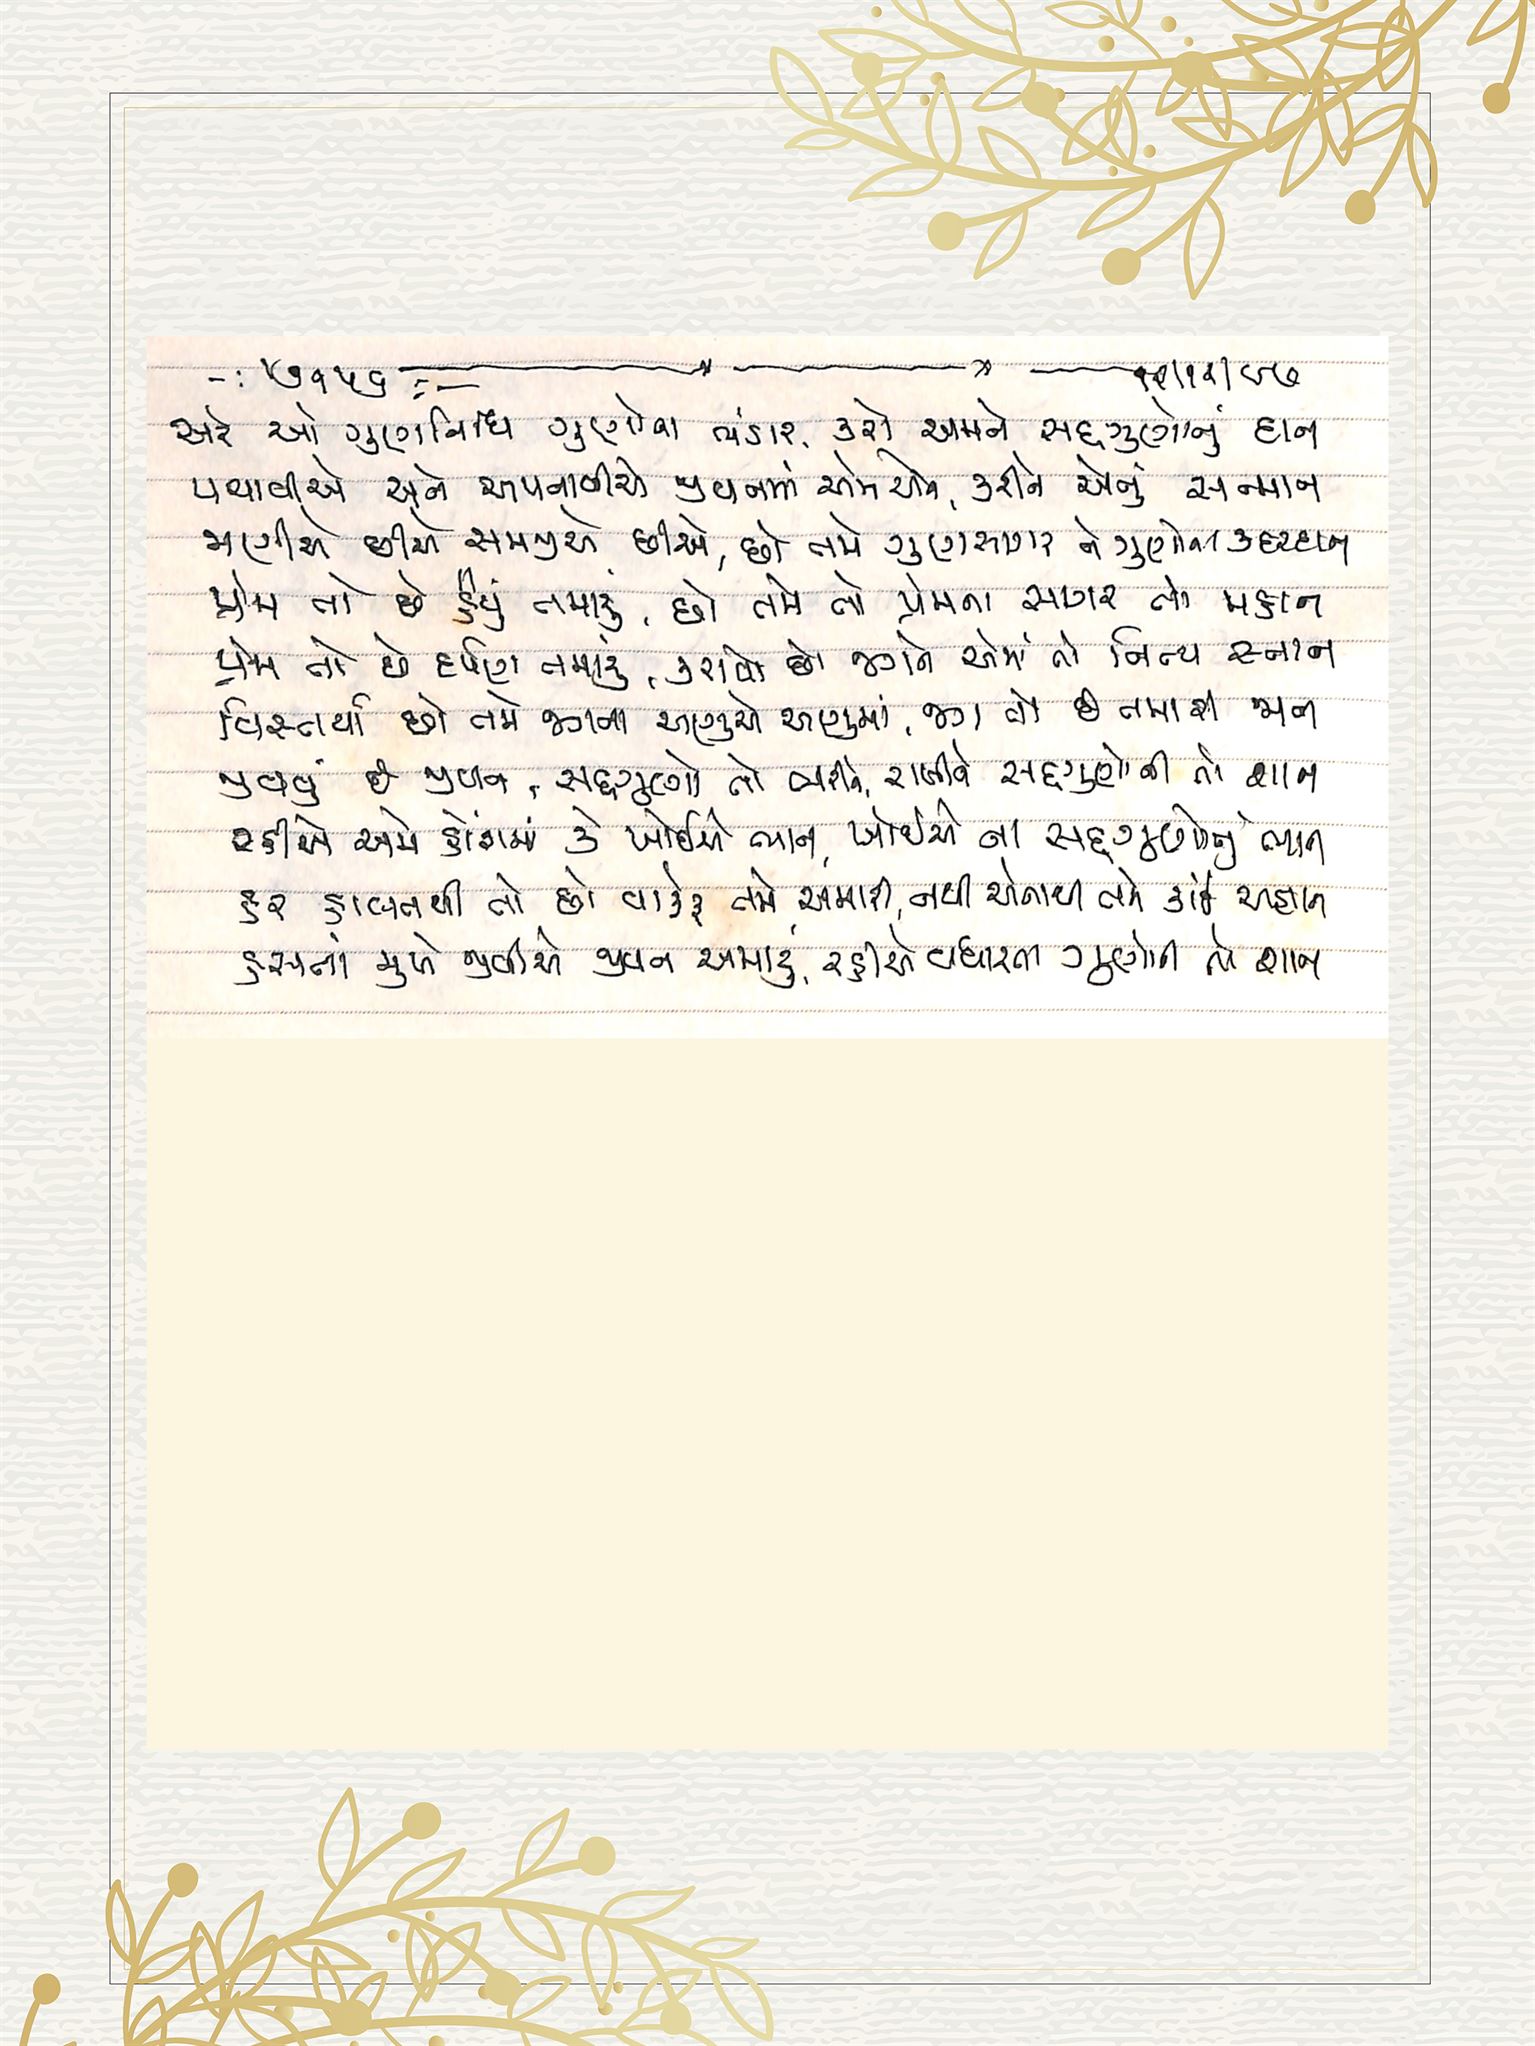 -: ૭૧૫૬ :- ૧૨/૧૨/૯૭
અરે ઓ ગુણનિધિ ગુણોના ભંડાર, કરો અમને સદ્દગુણોનું દાન
પચાવીએ અને અપનાવીએ જીવનમાં એમ એને, કરીને એનું સન્માન
જાણીએ છીએ સમજીએ છીએ, છો તમે ગુણસાગર ને ગુણોના કદરદાન
પ્રેમ તો છે હૈયું તમારું, છો તમે તો પ્રેમના સાગર તો મહાન
પ્રેમ તો છે દર્પણ તમારું, કરાવો છો જગને એમાં તો નિત્ય સ્નાન
વિસ્તર્યા છો તમે જગના અણુએ અણુમાં, જગ તો છે તમારી જાન
જીવવું છે જીવન, સદ્દગુણો તો ભરીને, રાખીને સદ્દગુણોની તો શાન
રહીએ અમે હોંશમાં કે ખોઈએ ભાન, ખોઈએ ના સદ્દગુણોનું ભાન
હર હાલતથી તો છો વાકેફ તમે અમારી, નથી એનાથી તમે કાંઈ અજ્ઞાન
હસતાં મુખે જીવીએ જીવન અમારું, રહીએ વધારતા ગુણોની તો શાન